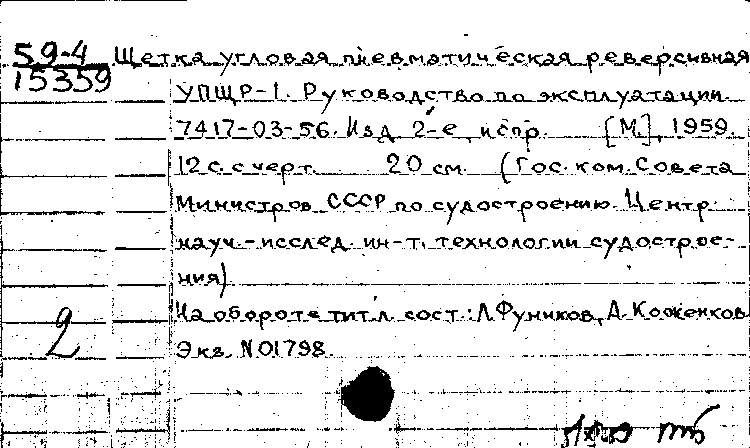 59-4 Щетка угловая пневматическая реверсивная
15359
УПЩР-1. Руководство по эксплуатации.
7417-03-56. Изд. 2-е, испр. [М.], 1959.
12 с. с черт. 20 см. (Гос. ком. Совета
Министров СССР по судостроению. Центр.
науч.-исслед. ин-т. технологии судострое-
ния)
На обороте тит. л. сост.: Л. Фуников, А. Коженков
2
Экз. N01798.